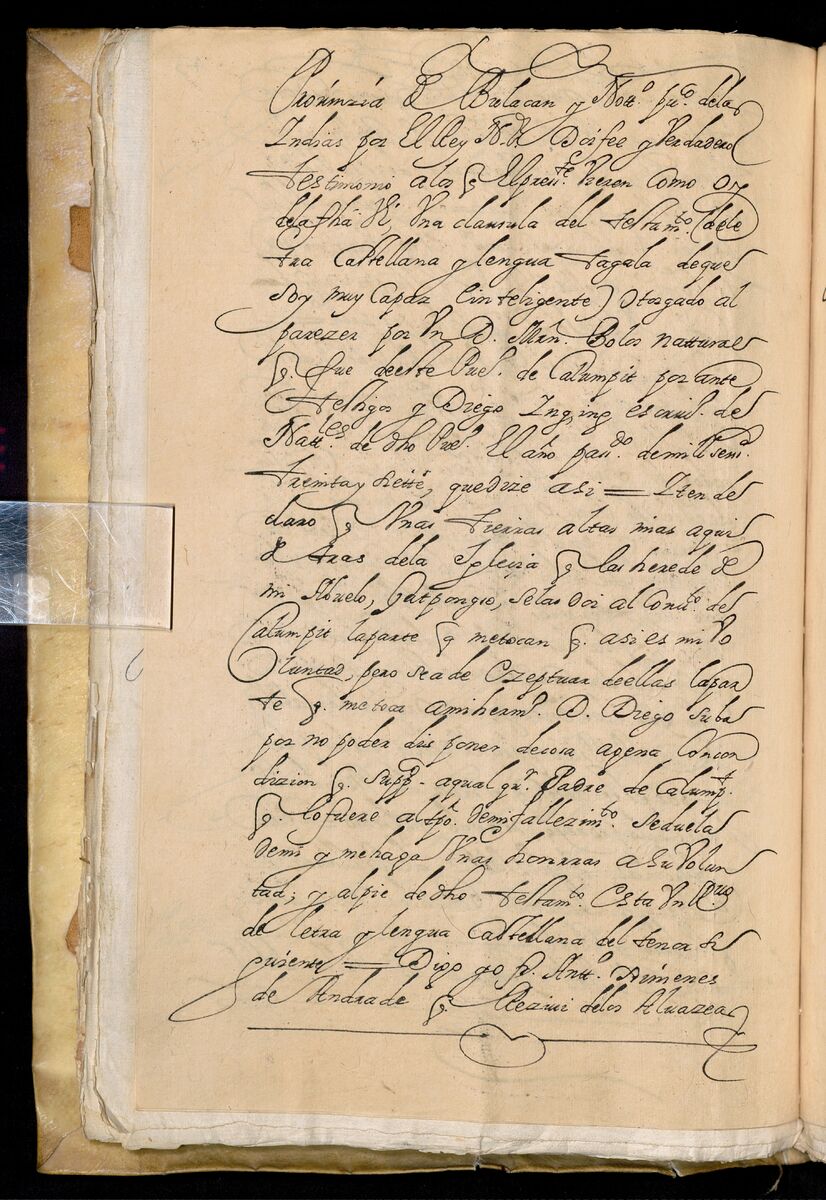 Provinzia de Bulacan y Nott.o pu.co delas
Indias por El Rey N. S.r Doi fee y Verdadero
testimonio a los q. El presen.te Vieren Como oy
dela fha Vi, Vna clausula del testam.to (de le
tra Castellana y lengua tagala de que
soy muy Capaz E inteligente) otorgado al
parezer por Vn D. Mrn. Bolos natural
q. fue de este Pue.o de Calumpit por ante
testigos y Diego Inging escriu.o de
Natt.les de dho Pue.o El año pas.do de mill seis.os
treinta y siette, que dize asi = Iten de
claro q. Vnas tierras altas mas aqui
de tras dela Iglesia q. las herede de
mi Abuelo, Gatpongio, se las doi al Conu.to de
Calumpit la parte q. me tocan q. asi es mi Vo
luntad, pero se a de Ezeptuar de ellas la par
te q. me tocar a mi herm.o D. Diego Suba
por no poder disponer de cosa agena Con con
dizion q. supp.co a qual qu.r Padre de Calump.t
q. lo fuere al tpo. de mi fallezim.to se duela
de mi y me haga Vnas honrras a su Volun
tad; y al pie de dho testam.to Esta Vn Rezivo
de letra y lengua Castellana del tenor si
guiente = Digo yo fr. Antt.o Ximenes
de Andrade q. Rezivi delos Aluazeas